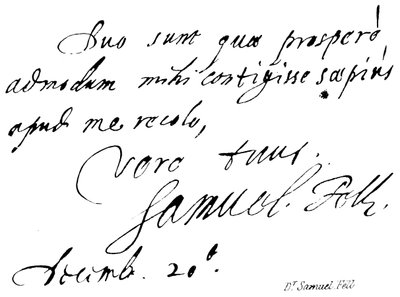 Duo sunt quæ prosperè
admodum mihi contigisse sæpius
apud me recolo,
Vere tuus.
Samuel. Fell.
Decemb. 20º.
Dr. Samuel Fell